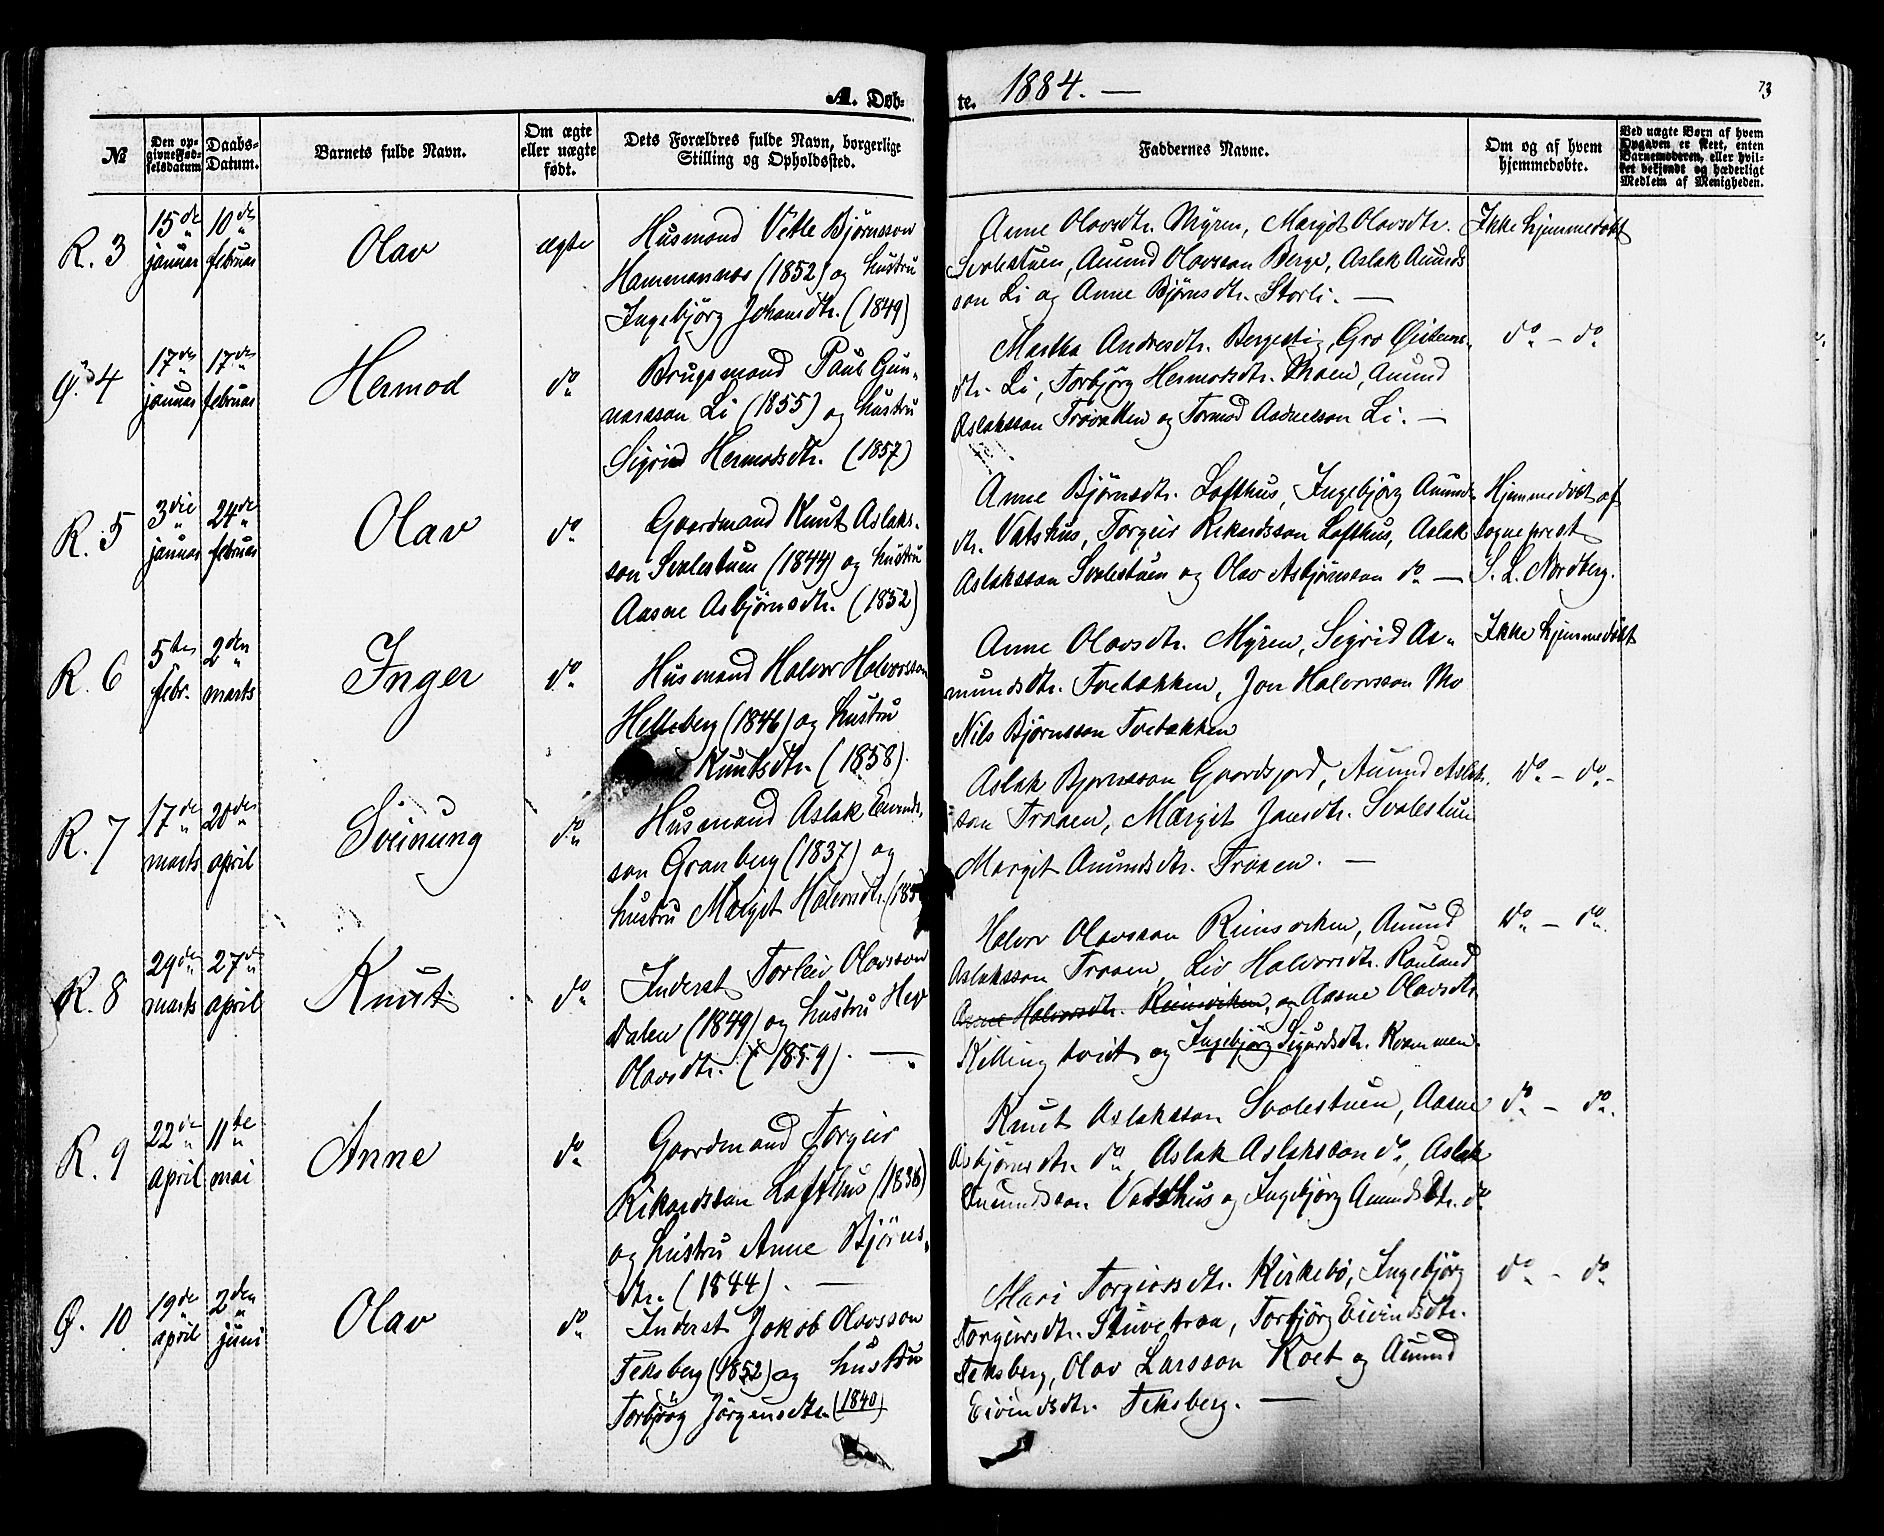 A. Døb-
te. 1884. —
73
№
Den op-
givne Fød-
selsdatum
Daabs-
Datum.
Barnets fulde Navn.
Om ægte
eller uægte
født.
Dets Forældres fulde Navn, borgerlige
Stilling og Opholdssted.
Faddernes Navne.
Om og af hvem
hjemmedøbte.
Ved uægte Børn af hvem
Opgaven er skeet, enten
Barnemoderen, eller hvil-
ket bekjendt og hæderligt
Medlem af Menigheden.
R. 3
15de
januar
10de
februar
Olav
ægte
Husmand Vetle Bjørnsson
Hammarnes (1852) og hustru
Ingebjörg Johansdtr. (1849)
Anne Olavsdtr. Myren, Margit Olavsdtr.
Svalestuen, Amund Olavsson Berge, Aslak Amunds
son Li og Anne Bjørnsdtr. Storli. —
Ikke hjemmedøbt
Ø. 4
17de
januar
17de
februar
Hermod
do
Brugsmand Paul Gun-
narsson Li (1855) og hustru
Sigrid Hermodsdtr. (1857)
Martha Andresdtr. Bergestig, Gro Øistens-
dtr. Li, Torbjörg Hermodsdtr. Moen, Amund
Aslaksson Trovatten og Tormod Aadnesson Li. —
do — do
R. 5
3die
januar
24de
februar
Olav
do
Gaardmand Knut Aslaks-
son Svalestuen (1844) og hustru
Aasne Asbjørnsdtr. (1852)
Anne Bjørnsdtr. Lofthus, Ingebjörg Amunds
dtr. Vatshus, Torgeir Rikardsson Lofthus, Aslak
Aslaksson Svalestuen og Olav Asbjørnsson do —
Hjemmedøbt af
sogneprest
S. L. Nordberg.
R. 6
5te
febr.
2den
marts
Inger
do
Husmand Halvor Halvorsson
Helleberg (1846) og hustru
Knutsdtr. (1858).
Anne Olavsdtr. Myren, Sigrid As-
mundsdtr. Tvebækken, Jon Halvorsson Mo
Nils Bjørnsson Tvebækken
Ikke hjemmedøbt
R. 7
17de
marts
20de
april
Sveinung
do
Husmand Aslak Eivinds-
son Granberg (1837) og
hustru Margit Halvorsdtr. (185
Aslak Bjørnsson Gaardsjord, Amund Aslak-
son Troaen, Margit Jonsdtr. Svalestuen
Margit Amundsdtr. Troaen. —
do — do
R. 8
29de
marts
27de
april
Knut
do
Inderst Torleiv Olavsson
Dalen (1849) og hustru Hæge
Olavsdtr. (1859). —
Halvor Olavsson Reinsviken, Amund
Aslaksson Troaen, Liv Halvorsdtr. Rauland
Aasne Halvorsdtr. Reinsviken, og Aasne Olavsdtr.
Killingtveit og Ingebjörg Sigurdsdtr. Kvammen.
do — do
R. 9
22de
april
11te
mai
Anne
do
Gaardmand Torgeir
Rikardsson Lofthus (1838)
og hustru Anne Bjørns-
dtr. (1844). —
Knut Aslaksson Svalestuen, Aasne
Asbjørnsdtr. do, Aslak Aslaksson do, Aslak
Amundsson Vatshus og Ingebjörg Amundsdtr. do
do — do
Ø. 10
19de
april
2den
juni
Olav
do
Inderst Jakob Olavsson
Feksberg (1852) og hustru
Torbjörg Jörgensdtr. (1840)
Mari Torgeirsdtr. Kirkebö, Ingebjörg
Torgeirsdtr. Stuvetraa, Torbjörg Eivindsdtr.
Feksberg, Olav Larsson Roet og Amund
Eivindsdtr. Feksberg. —
do — do